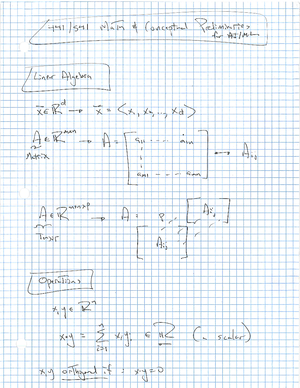 491/591 Math & Conceptual Preliminaries
for AI/ML
Linear Algebra
x ∈ ℝ^d → x = <x₁, x₂, ..., x_d>
A ∈ ℝ^{m×n} → A = [a₁₁ ... a₁ₙ ⋮ a_{m1} ... a_{mn}] → A_{ij}
Matrix
A ∈ ℝ^{m×n×p} → A = p [A_{ij}] [A_{ij}]
Tensor
Operations
x, y ∈ ℝⁿ
x·y = Σ_{i=1}^{n} x_i y_i ∈ ℝ (a scalar)
x, y orthogonal if : x·y = 0